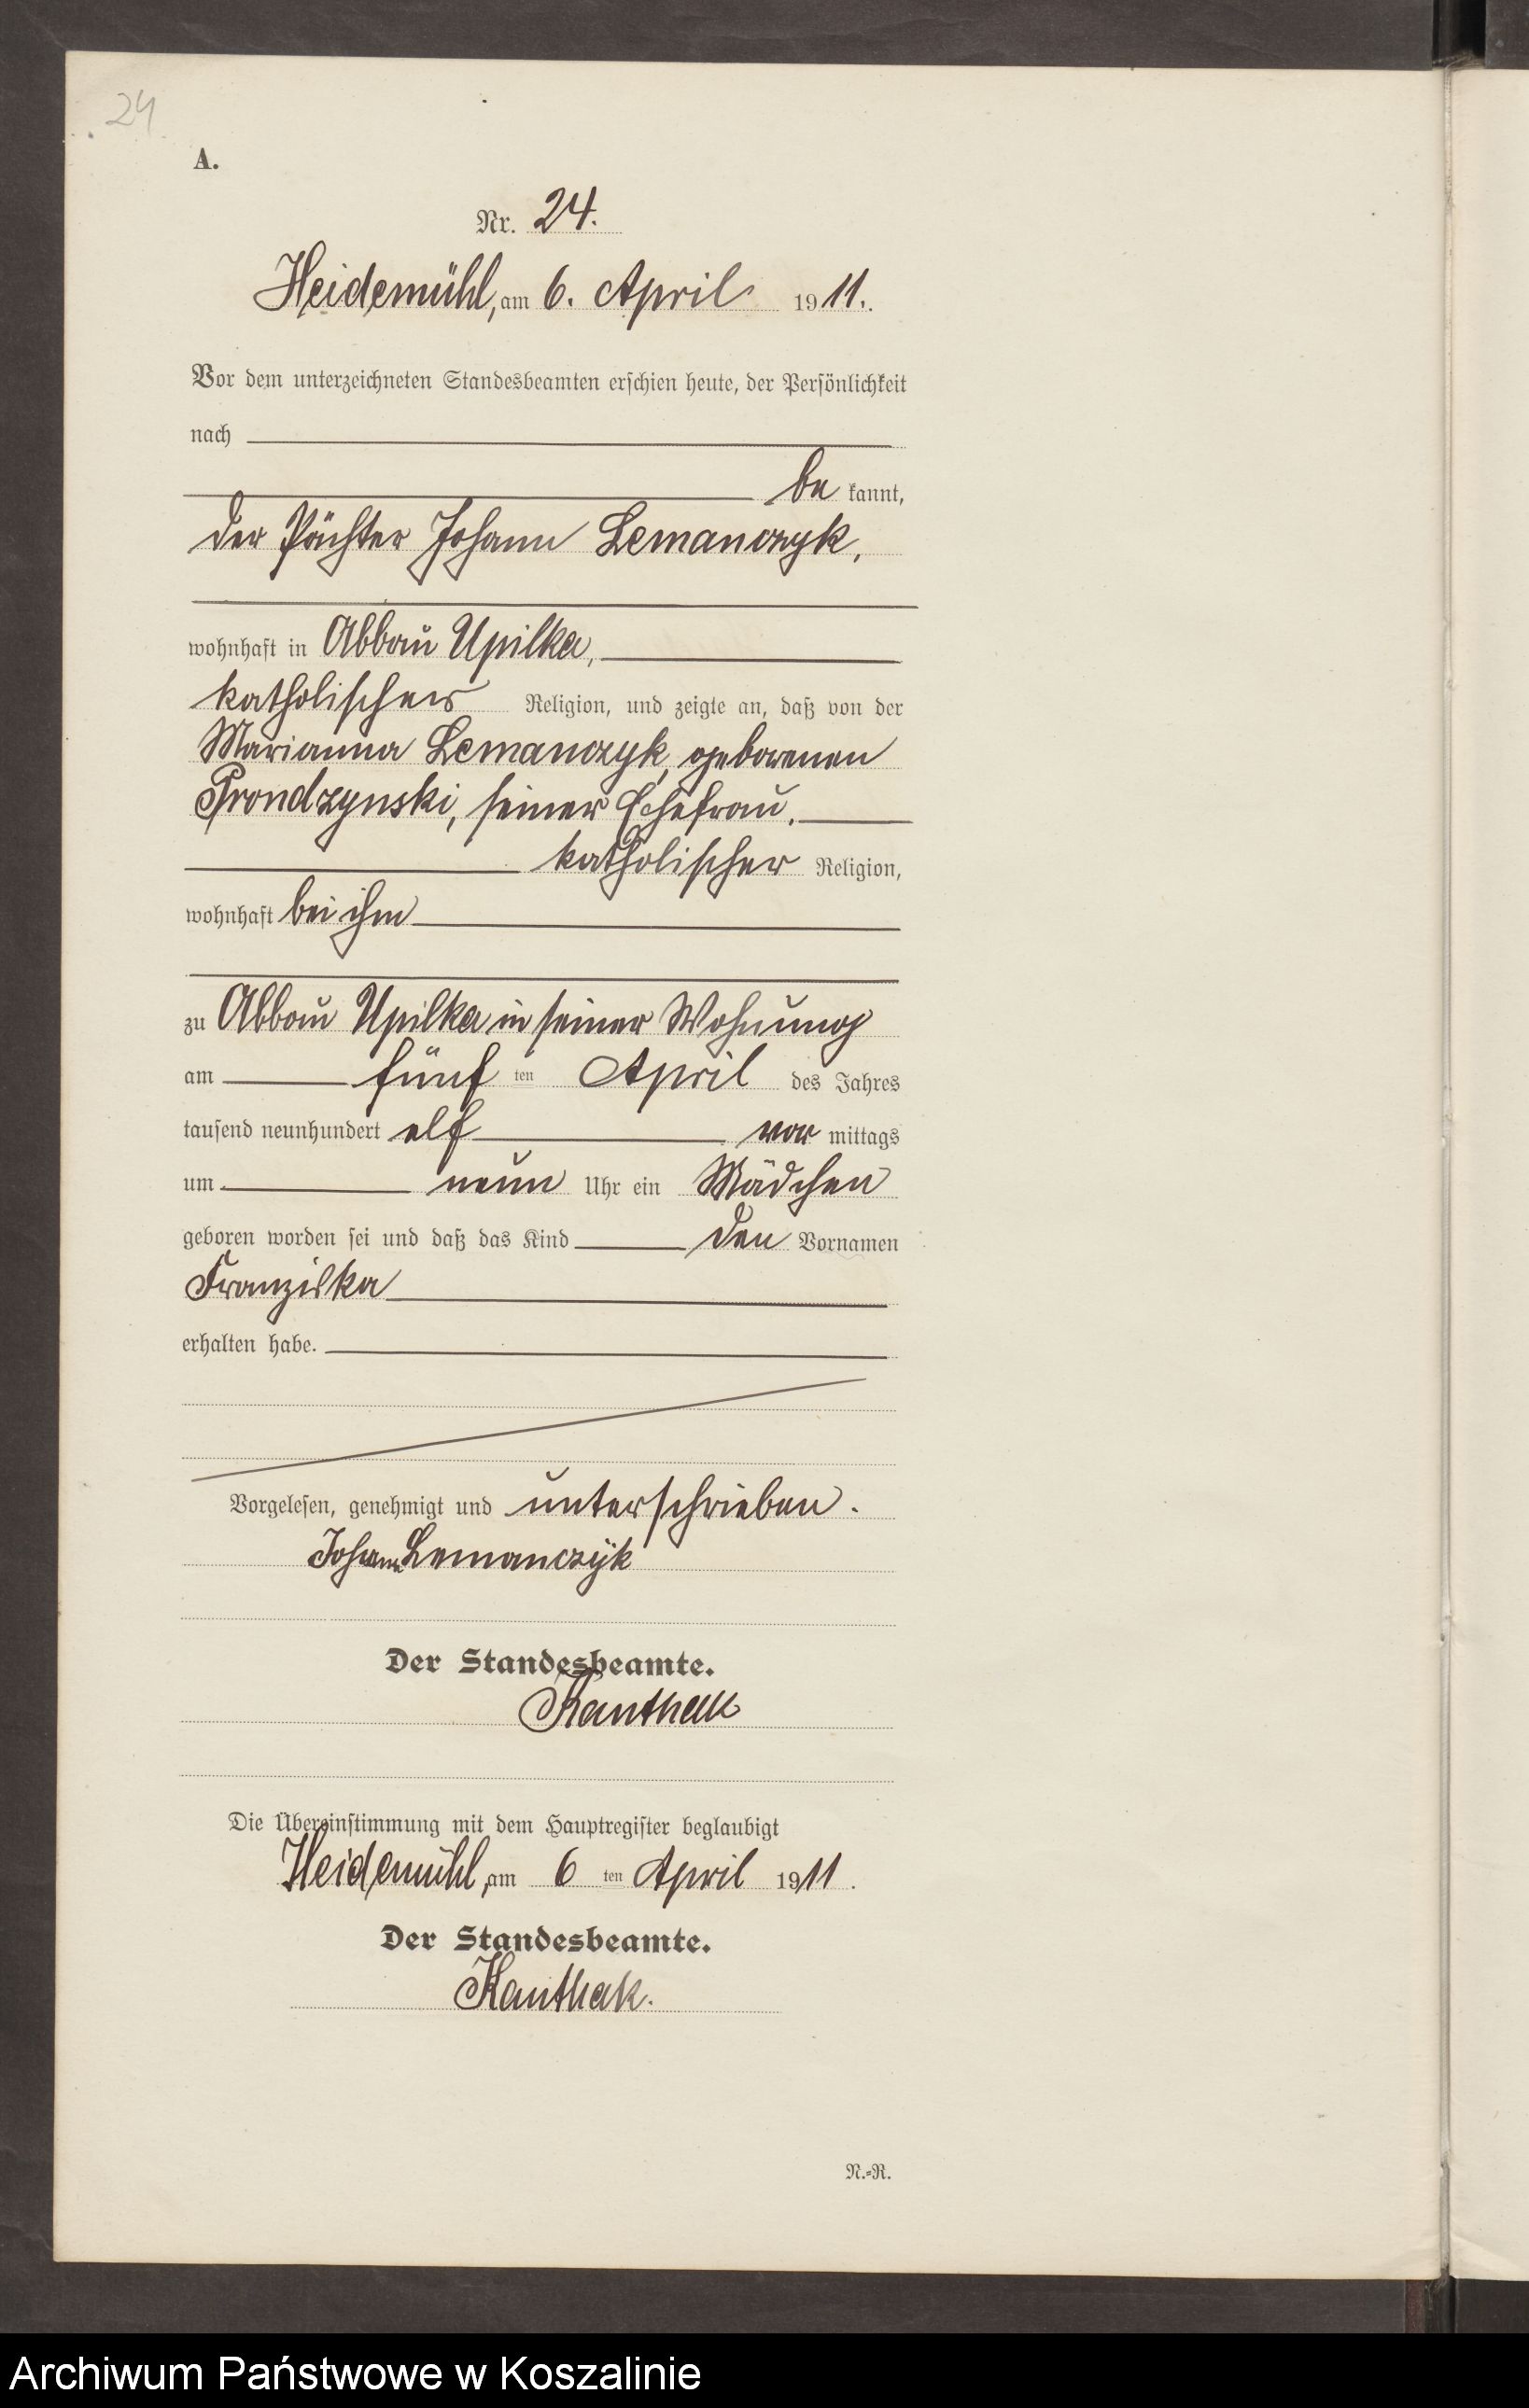 24
A.
Nr. 24.
Heidemühl, am 6. April 1911.
Vor dem unterzeichneten Standesbeamten erschien heute, der Persönlichkeit
nach
be kannt,
der Pächter Johann Lemanczyk,
wohnhaft in Abbau Upilka,
katholischer Religion, und zeigte an, daß von der
Marianna Lemanczyk, geborenen
Prondzynski, seiner Ehefrau,
katholischer Religion,
wohnhaft bei ihm
zu Abbau Upilka in seiner Wohnung
am fünf ten April des Jahres
tausend neunhundert elf vor mittags
um neun Uhr ein Mädchen
geboren worden sei und daß das Kind den Vornamen
Franziska
erhalten habe.
Vorgelesen, genehmigt und unterschrieben.
Johann Lemanczÿk
Der Standesbeamte.
Kanthak
Die Übereinstimmung mit dem Hauptregister beglaubigt
Heidemühl, am 6 ten April 1911.
Der Standesbeamte.
Kanthak.
N.=R.
Archiwum Państwowe w Koszalinie